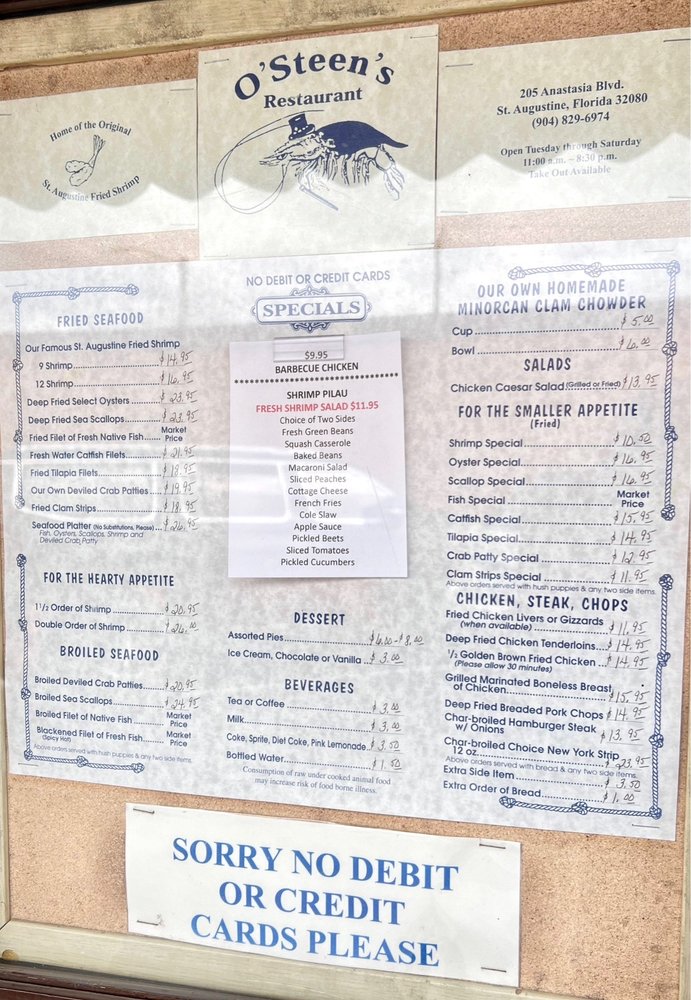 Home of the Original
St. Augustine Fried Shrimp
O'Steen's
Restaurant
205 Anastasia Blvd.
St. Augustine, Florida 32080
(904) 829-6974
Open Tuesday through Saturday
11:00 a.m. ~ 8:30 p.m.
Take Out Available
FRIED SEAFOOD
Our Famous St. Augustine Fried Shrimp
9 Shrimp $14.95
12 Shrimp $16.95
Deep Fried Select Oysters $23.95
Deep Fried Sea Scallops $23.95
Fried Filet of Fresh Native Fish Market Price
Fresh Water Catfish Filets $21.95
Fried Tilapia Filets $18.95
Our Own Deviled Crab Patties $19.95
Fried Clam Strips $18.95
Seafood Platter (No Substitutions, Please) $26.95
Fish, Oysters, Scallops, Shrimp and
Deviled Crab Patty
FOR THE HEARTY APPETITE
1 1/2 Order of Shrimp $20.95
Double Order of Shrimp $26.00
BROILED SEAFOOD
Broiled Deviled Crab Patties $20.95
Broiled Sea Scallops $24.95
Broiled Filet of Native Fish Market Price
Blackened Filet of Fresh Fish Market Price
(Spicy Hot)
Above orders served with hush puppies & any two side items.
NO DEBIT OR CREDIT CARDS
SPECIALS
$9.95
BARBECUE CHICKEN
SHRIMP PILAU
FRESH SHRIMP SALAD $11.95
Choice of Two Sides
Fresh Green Beans
Squash Casserole
Baked Beans
Macaroni Salad
Sliced Peaches
Cottage Cheese
French Fries
Cole Slaw
Apple Sauce
Pickled Beets
Sliced Tomatoes
Pickled Cucumbers
DESSERT
Assorted Pies $6.00-$8.00
Ice Cream, Chocolate or Vanilla $3.00
BEVERAGES
Tea or Coffee $3.00
Milk $3.00
Coke, Sprite, Diet Coke, Pink Lemonade $3.50
Bottled Water $1.50
Consumption of raw under cooked animal food
may increase risk of food borne illness.
OUR OWN HOMEMADE
MINORCAN CLAM CHOWDER
Cup $5.00
Bowl $6.00
SALADS
Chicken Caesar Salad (Grilled or Fried) $13.95
FOR THE SMALLER APPETITE
(Fried)
Shrimp Special $10.50
Oyster Special $16.95
Scallop Special $16.95
Fish Special Market Price
Catfish Special $15.95
Tilapia Special $14.95
Crab Patty Special $12.95
Clam Strips Special $11.95
Above orders served with hush puppies & any two side items.
CHICKEN, STEAK, CHOPS
Fried Chicken Livers or Gizzards
(when available) $11.95
Deep Fried Chicken Tenderloins $14.95
1/2 Golden Brown Fried Chicken $14.95
(Please allow 30 minutes)
Grilled Marinated Boneless Breast
of Chicken $15.95
Deep Fried Breaded Pork Chops $14.95
Char-broiled Hamburger Steak
w/ Onions $13.95
Char-broiled Choice New York Strip
12 oz. $23.95
Above orders served with bread & any two side items.
Extra Side Item $3.50
Extra Order of Bread $1.00
SORRY NO DEBIT
OR CREDIT
CARDS PLEASE